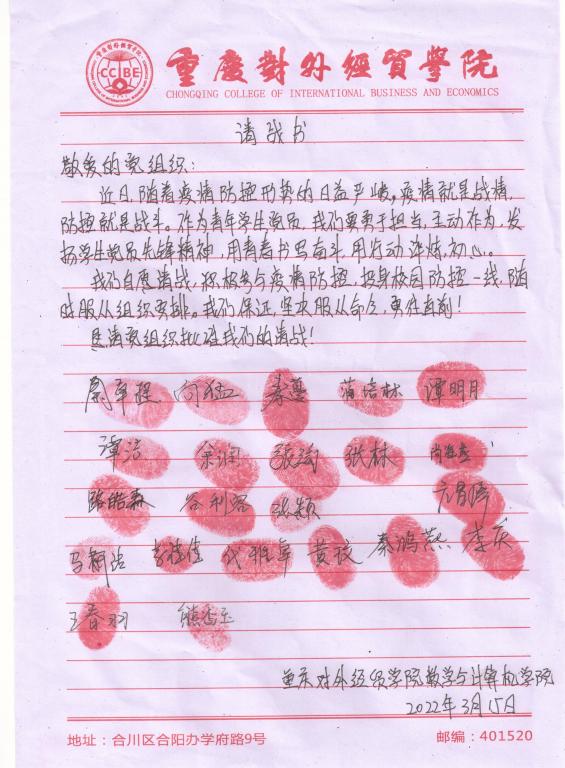 重慶對外經貿學院
CHONGQING COLLEGE OF INTERNATIONAL BUSINESS AND ECONOMICS
CCIBE
请战书
敬爱的党组织：
近日，随着疫情防控形势的日益严峻，疫情就是战情，
防控就是战斗。作为青年学生党员，我们要勇于担当，主动作为，发
扬学生党员先锋精神，用青春书写奋斗，用行动淬炼初心。
我们自愿请战，积极参与疫情防控，投身校园防控一线，随
时服从组织安排。我们保证，坚决服从命令，勇往直前！
恳请党组织批准我们的请战！
向猛 秦蔓 蒲培林 谭明月
谭洁 余润 张林
路皓森 谷利容 张颖
李佳佳 代雅军 黄玟 秦鸿燕 李庆
王春羽 熊
重庆对外经贸学院数学与计算机学院
2022年3月15日
地址：合川区合阳办学府路9号 邮编：401520